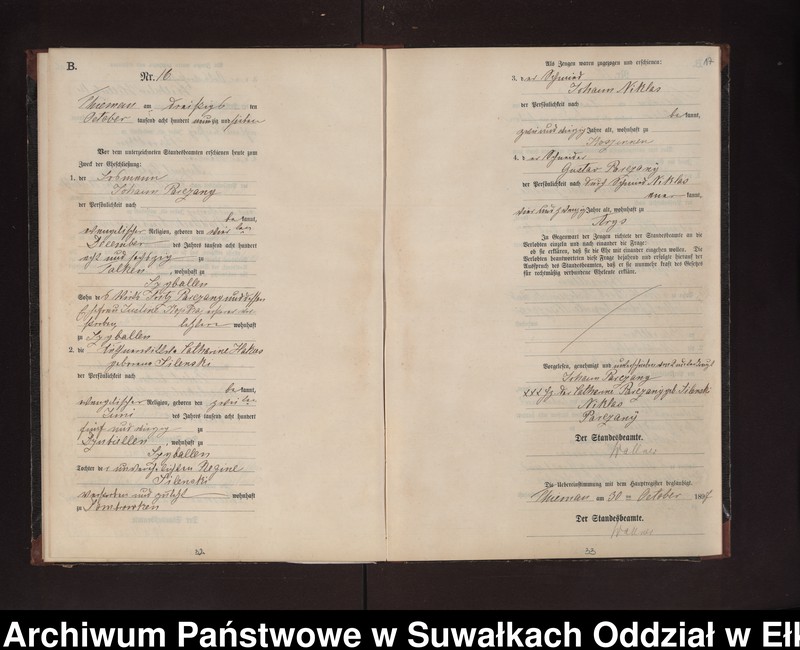 B.
Nr. 16
am Dreißigs ten
October tausend acht hundert neunzig und sieben
Vor dem unterzeichneten Standesbeamten erschienen heute zum
Zweck der Eheschließung:
1. der
Johann Parezany
der Persönlichkeit nach
be kannt,
evangelischer Religion, geboren den vier ten
Dezember des Jahres tausend acht hundert
acht und sechszig zu
, wohnhaft zu
Sygballen
Sohn des Wirts Fritz Parezany und dessen
letztere wohnhaft
zu Sygballen
2. die Catharine
geborene Silenski
der Persönlichkeit nach
be kannt,
evangelischer Religion, geboren den zwei ten
Juni des Jahres tausend acht hundert
fünf und zu
, wohnhaft zu
Sygballen
Tochter der unverehelichten Regine
Silenski
verstorben und zuletzt wohnhaft
zu
52
Als Zeugen waren zugezogen und erschienen:
17
3. der Schmied
Johann Niklas
der Persönlichkeit nach
be kannt,
Jahre alt, wohnhaft zu
4. der Schneider
Gustav Parezany
der Persönlichkeit nach durch Schmied Niklas
aner kannt,
vier und zwanzig Jahre alt, wohnhaft zu
Arys
In Gegenwart der Zeugen richtete der Standesbeamte an die
Verlobten einzeln und nach einander die Frage:
ob sie erklären, daß sie die Ehe mit einander eingehen wollen. Die
Verlobten beantworteten diese Frage bejahend und erfolgte hierauf der
Ausspruch des Standesbeamten, daß er sie nunmehr kraft des Gesetzes
für rechtmäßig verbundene Eheleute erkläre.
Vorgelesen, genehmigt und
Johann Parezany
xxx der Catharine Parezany geb. Silenski
Niklas
Parezany
Der Standesbeamte.
Die Uebereinstimmung mit dem Hauptregister beglaubigt.
am 30 ten October 1897
Der Standesbeamte.
53
Archiwum Państwowe w Suwałkach Oddział w Ełk